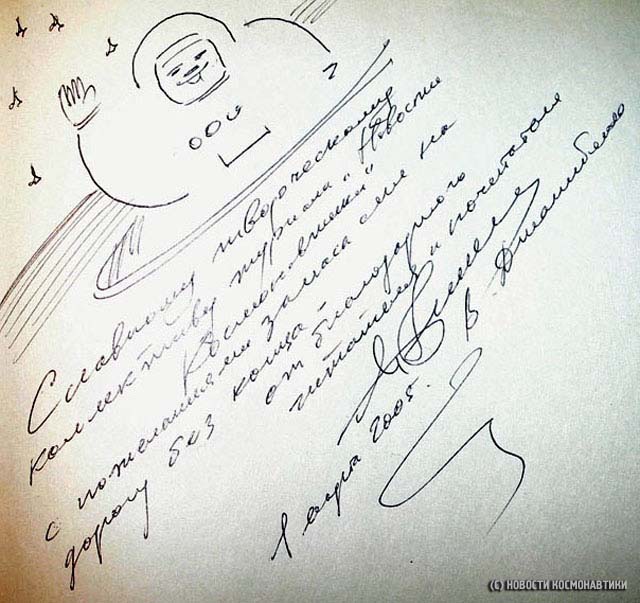 Славному творческому
коллективу журнала "Новости
Космонавтики"
с пожеланиями запаса сил на
дорогу без конца –
от благодарного
читателя и почитателя
В. Джанибеков
1 марта 2005.
(C) НОВОСТИ КОСМОНАВТИКИ